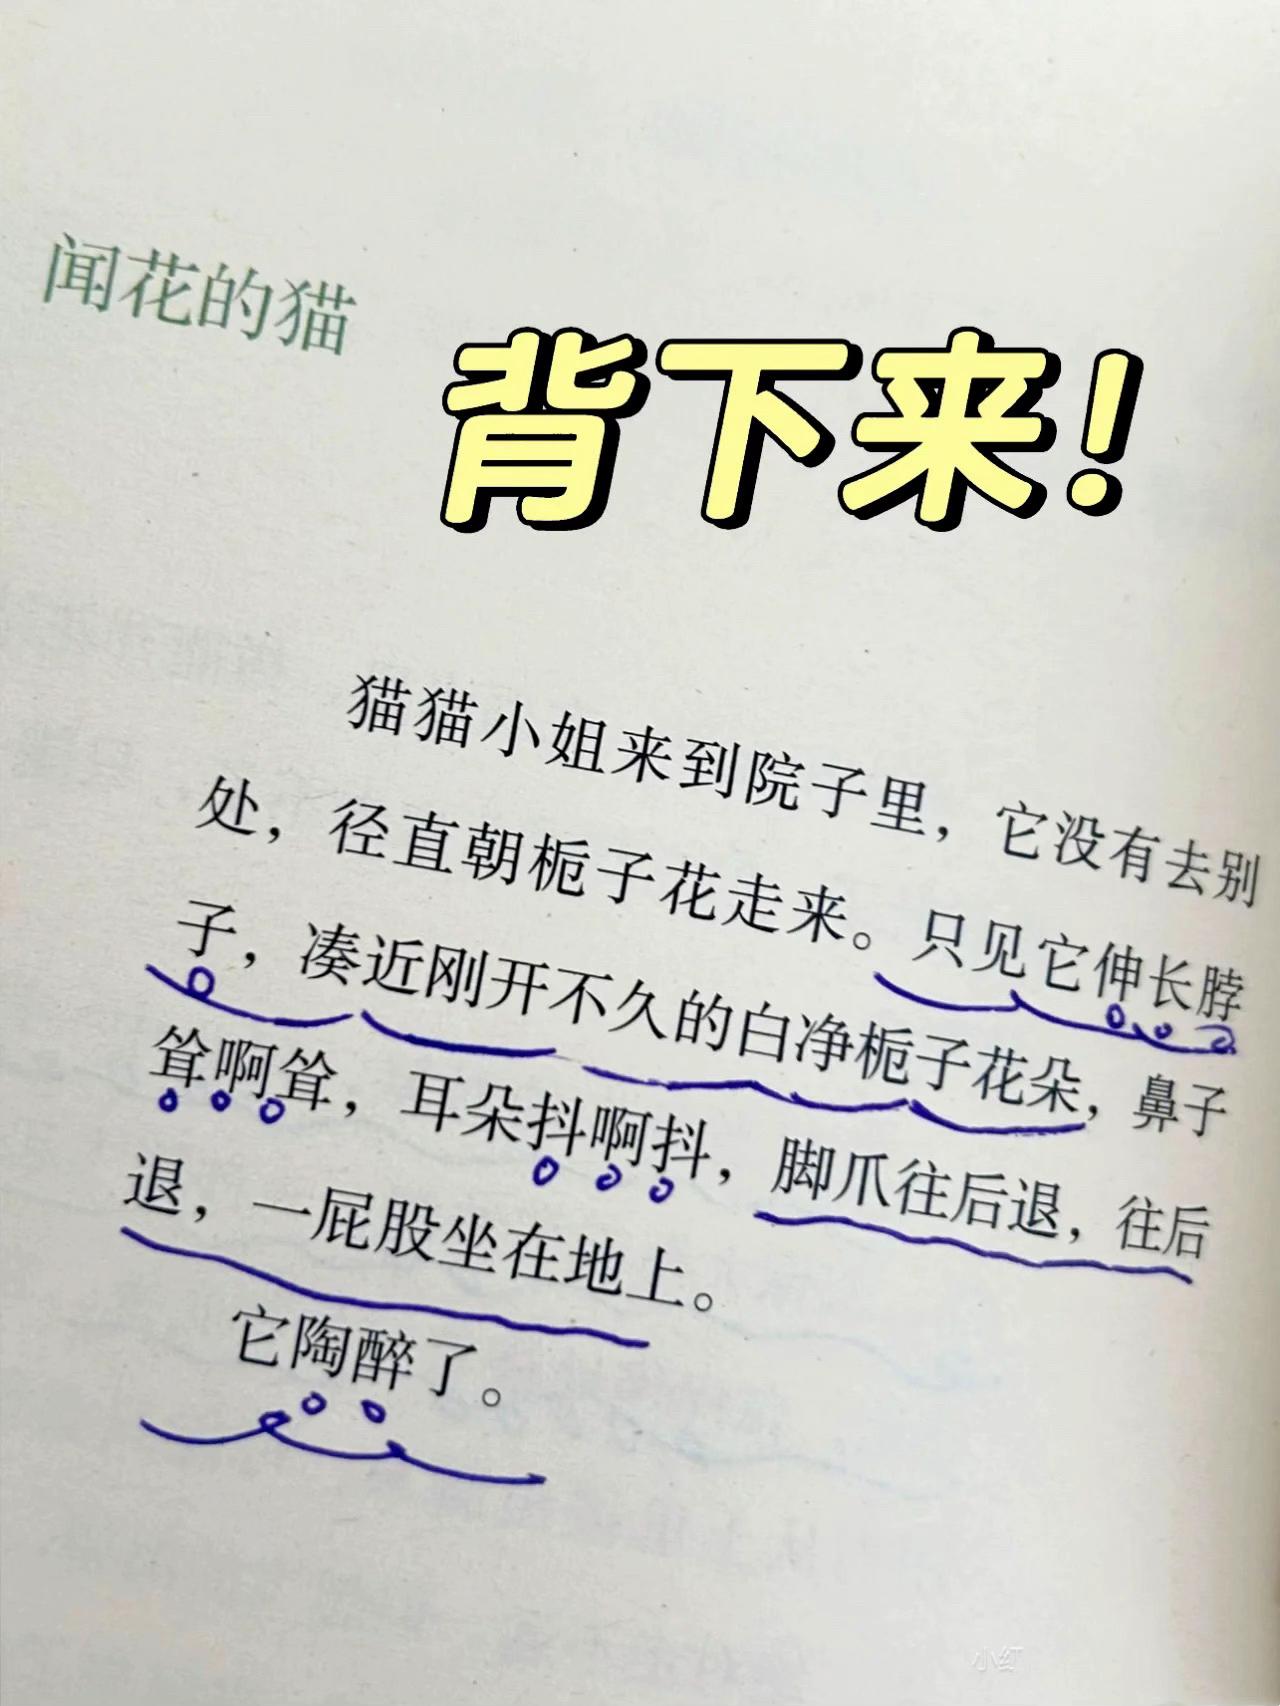 闻花的猫
背下来！
猫猫小姐来到院子里，它没有去别
处，径直朝栀子花走来。只见它伸长脖
子，凑近刚开不久的白净栀子花朵，鼻子
耸啊耸，耳朵抖啊抖，脚爪往后退，往后
退，一屁股坐在地上。
它陶醉了。
小红